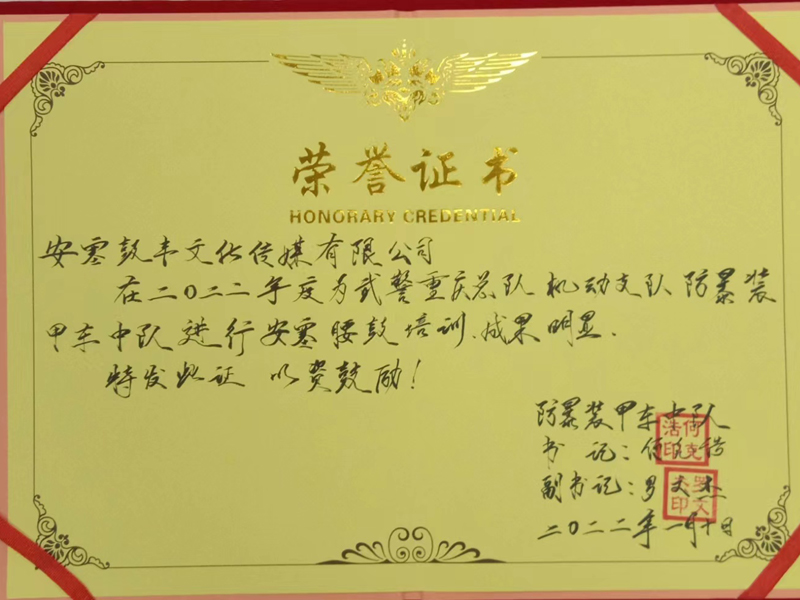 荣誉证书
HONORARY CREDENTIAL
安塞鼓韦文化传媒有限公司
在二〇二二年度为武警重庆总队机动支队防暴装
甲车中队进行安塞腰鼓培训、成果明显.
特发此证 以资鼓励!
防暴装甲车中队
书 记:何克浩
副书记:罗文杰
二〇二二年一月十日
何克
浩印
罗文
杰印